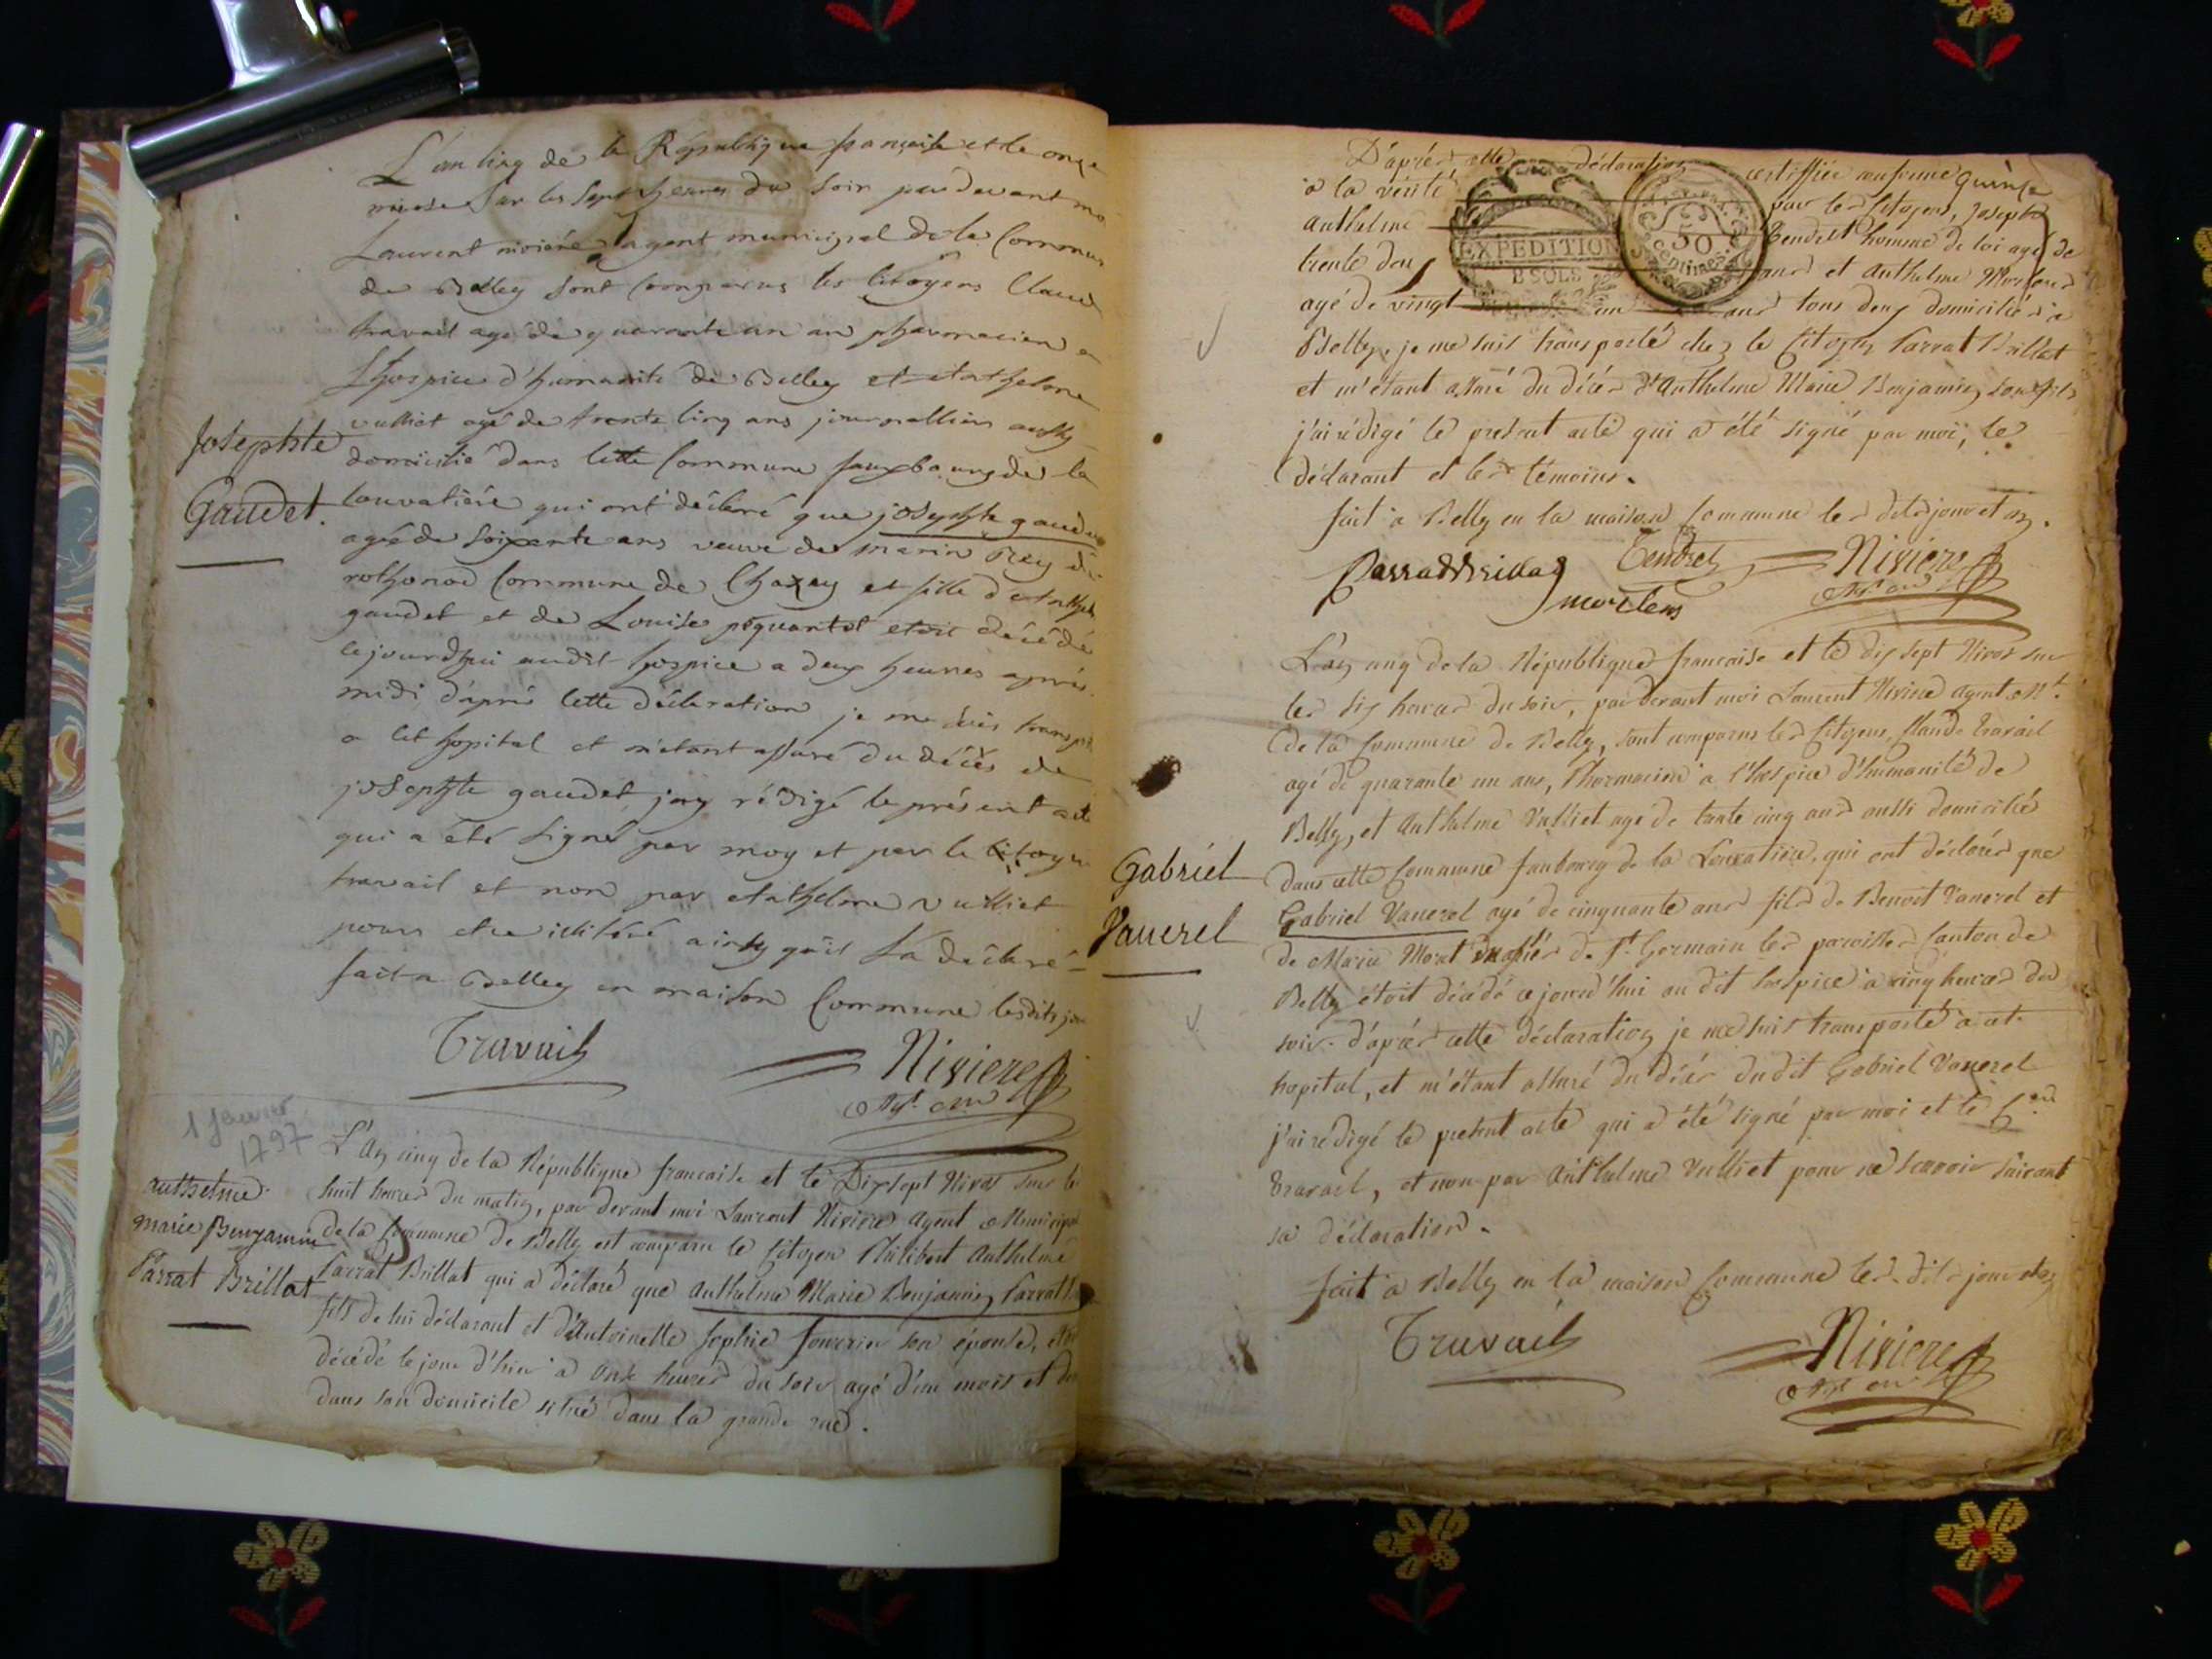 L'an cinq de la République française et le onze
nivose sur les sept heures du soir par devant mo
Laurent nivière agent municipal de la Commun
de Belley sont comparus les citoyens Claud
travail agé de quarante un an pharmacien a
L'hospice d'humanité de Belley et Anthelme
vulliet agé de trente cinq ans journallier aussy
domicilié dans cette Commune fauxbourg de la
Josephte
Gaudet.
Louvatière qui ont déclaré que josephte gaudet
agée de soixante ans veuve de marin Rey de
rothonod Commune de Chazey et fille d'Anthelm
gaudet et de Louise péquantet etoit décédé
cejourdhui audit hospice a deux heures après
midi d'après cette déclaration je me suis transp
a cet hopital et m'étant assuré du décès de
josephte gaudet j'ay rédigé le présent acte
qui a été signé par moy et par le citoyen
travail et non par Anthelme vulliet
pour etre illitéré ainsy qu'il l'a déclaré
fait a Belley en maison Commune lesdits jo
Travail
Niviere
Agt. mu
1 janvier
1797
L'An cinq de la République française et le Dix sept Nivos sur le
huit heures du matin, par devant moi Laurent Niviere Agent Municipal
de la Commune de Belley est comparu le Citoyen Philibert Anthelme
Anthelme
marie Benjamin
Parrat Brillat
Parrat Brillat qui a déclaré que Anthelme Marie Benjamin Parrat
fils de lui déclarant et d'Antoinette Sophie son épouse,
décédé le jour d'hier à onze heures du soir agé d'un mois et
dans son domicile situé dans la grande rue.
D'après cette déclaration certiffiée conforme quinze
à la vérité par les Citoyens, Joseph
Anthelme Tendret homme de loi agé de
trente deux ans et Anthelme
agé de vingt un ans tous deux domiciliés à
EXPEDITION
2 SOLS
50
centimes
Belley, je me suis transporté chez le Citoyen Parrat Brillat
et m'étant assuré du décès d'Anthelme Marie Benjamin, son fils
j'ai rédigé le présent acte qui a été signé par moi, le
déclarant et les témoins.
fait à Belley en la maison Commune les dits jour et an.
Parrat Brillat Tendret Niviere
Agt. mu
L'an cinq de la République française et le dix sept Nivos sur
les six heures du soir, par devant moi Laurent Niviere agent Mt.
de la Commune de Belley, sont comparus les Citoyens Claude travail
agé de quarante un ans, Pharmacien à l'hospice d'humanité de
Belley, et Anthelme Vulliet agé de trente cinq ans aussi domicilié
Gabriel
Vauerel
dans cette Commune faubourg de la Louvatière, qui ont déclaré que
Gabriel Vauerel agé de cinquante ans fils de Benoit Vauerel et
de Marie de St. Germain les paroisses Canton de
Belley étoit décédé ce jourd'hui au dit hospice à cinq heures du
soir. d'après cette déclaration je me suis transporté à cet
hopital, et m'étant assuré du décès du dit Gabriel Vauerel
j'ai rédigé le présent acte qui a été signé par moi et le Cen
travail, et non par Anthelme Vulliet pour ne sçavoir suivant
sa déclaration.
fait à Belley en la maison Commune les dits jour et an
Travail
Niviere
Agt. mu